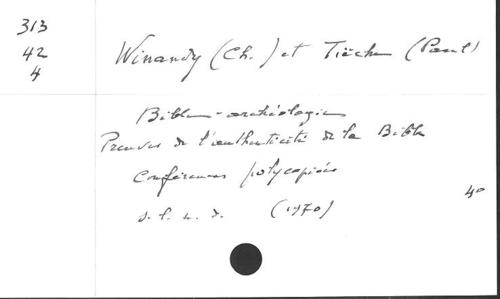 313
42
4
Winandy (Ch.) et Tièche (Paul)
Bible - archéologie
Preuves de l'authenticité de la Bible
Conférences polycopiées
s. l. n. d. (1970)
4°